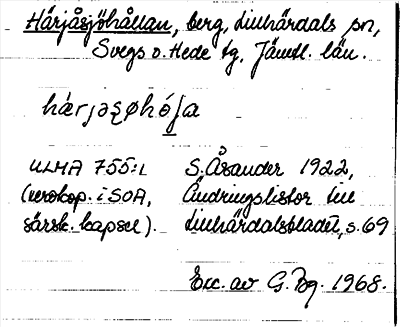 Härjåsjöhållan, berg, Linhärdals sn,
Svegs o. Hede tg, Jämtl. län.
härjåʂøhóʃa
ULMA 755:1 S. Åsander 1922,
(xerokop. i SOA, Ändringslistor till
särsk. kapsel). Linhärdalsbladet, s. 69
Exc. av G. Bg. 1968.